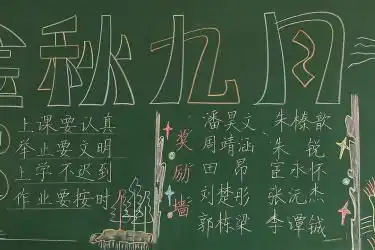 金秋九月
上课要认真
举止要文明
上学不迟到
作业要按时
奖励墙
潘昊文 朱榛歆
周靖涵 朱锐
田昂 臣永怀
刘楚彤 张沅杰
郭栋梁 李谭铖